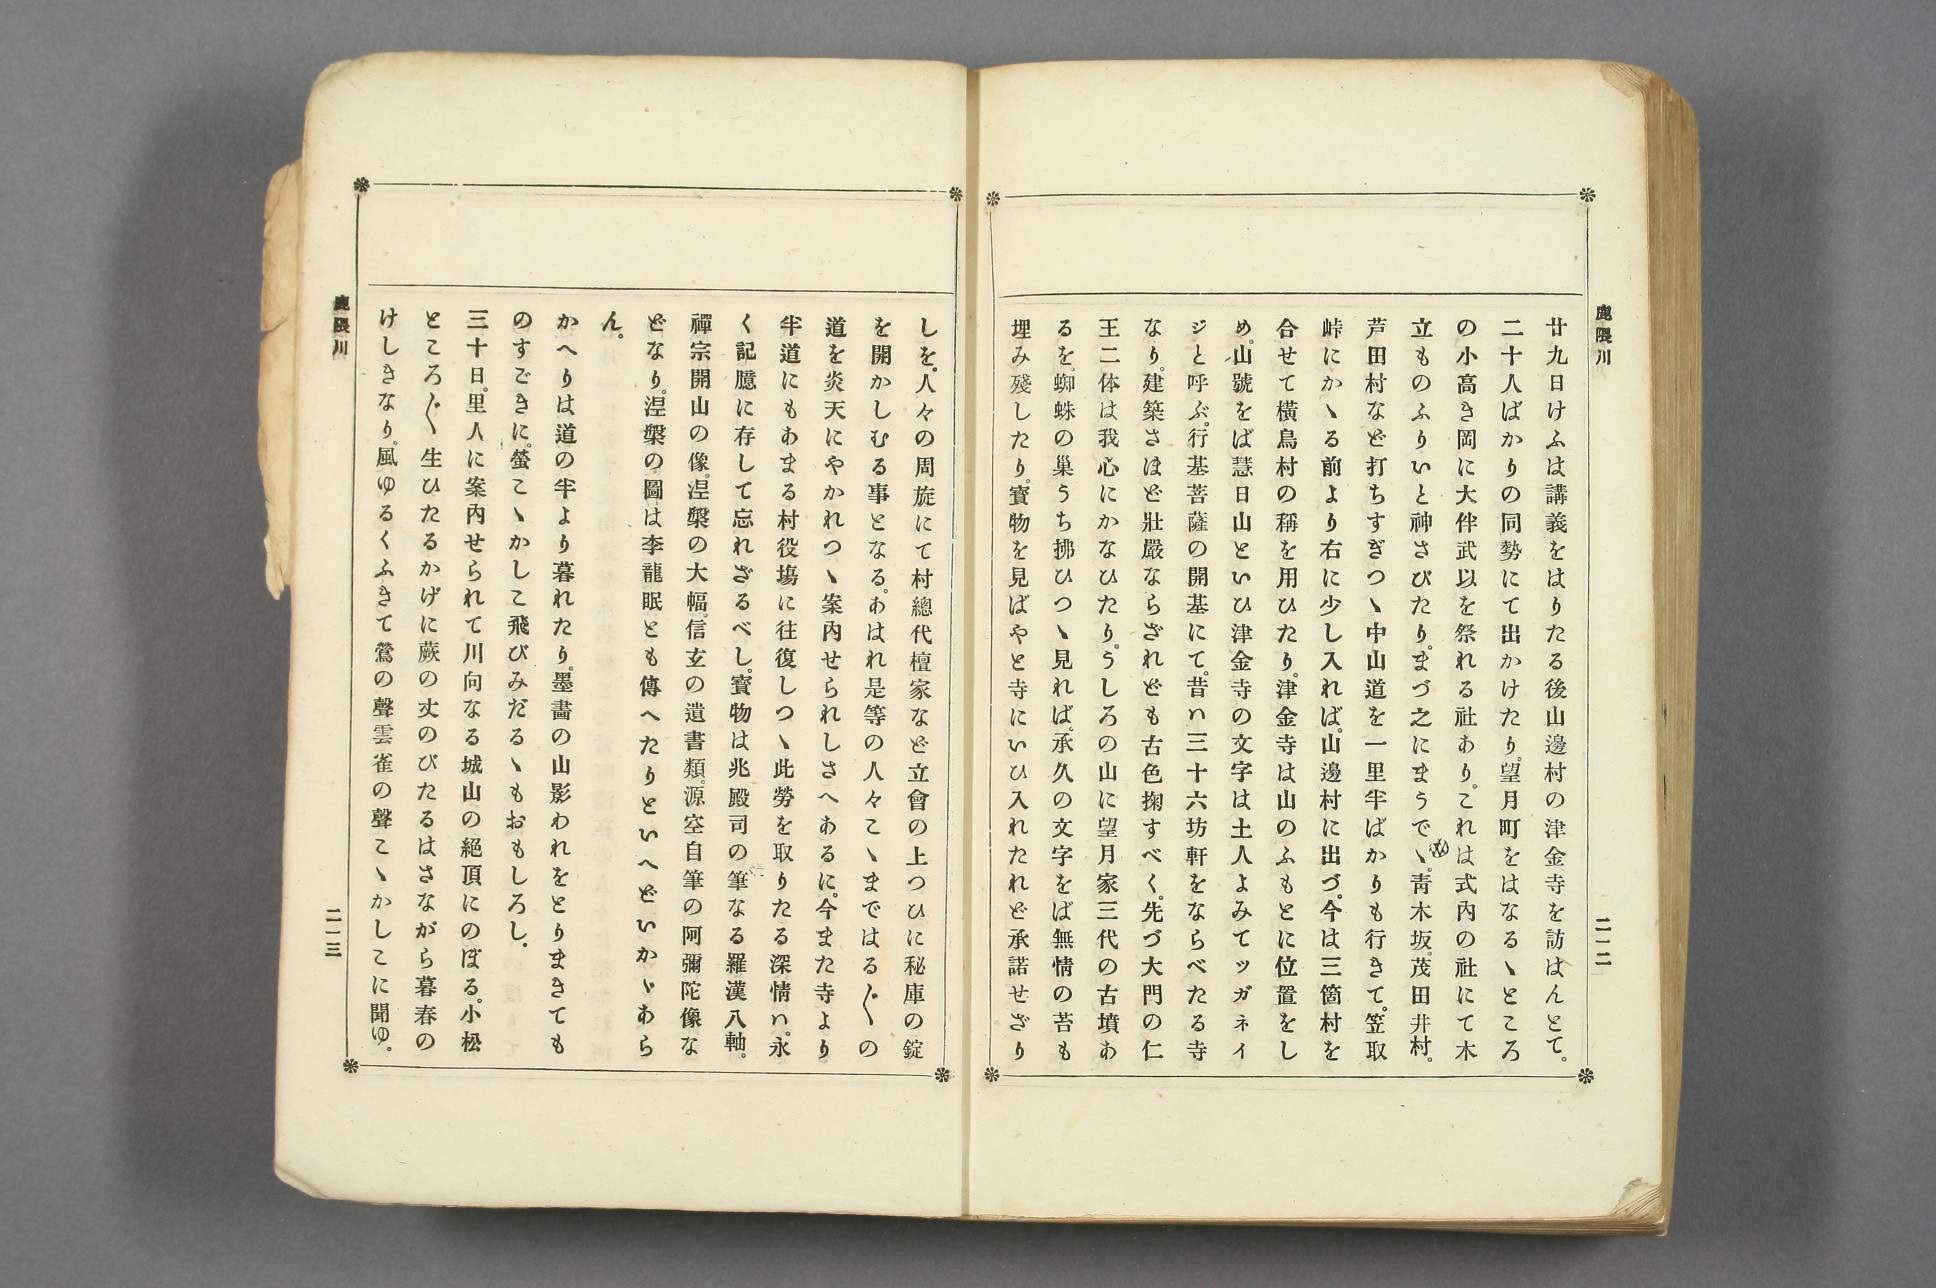 鹿隈川
廿九日けふは講義をはりたる後山邊村の津金寺を訪はんとて。
二十人ばかりの同勢にて出かけたり。望月町をはなるゝところ
の小高き岡に大伴武以を祭れる社あり。これは式內の社にて木
立ものふりいと神さびたり。まづ之にまうでゝ。靑木坂。茂田井村。
芦田村など打ちすぎつゝ中山道を一里半ばかりも行きて。笠取
峠にかゝる前より右に少し入れば。山邊村に出づ。今は三箇村を
合せて橫鳥村の稱を用ひたり。津金寺は山のふもとに位置をし
め。山號をば慧日山といひ津金寺の文字は土人よみてッガネイ
ジと呼ぶ。行基菩薩の開基にて。昔ハ三十六坊軒をならべたる寺
なり。建築さほど壯嚴ならざれども古色掬すべく。先づ大門の仁
王二体は我心にかなひたり。うしろの山に望月家三代の古墳あ
るを。蜘蛛の巢うち拂ひつゝ見れば。承久の文字をば無情の苔も
埋み殘したり。寶物を見ばやと寺にいひ入れたれど承諾せざり
二一二
しを。人々の周旋にて村總代檀家など立會の上つひに秘庫の錠
を開かしむる事となる。あはれ是等の人々こゝまではる〴〵の
道を炎天にやかれつゝ案內せられしさへあるに。今また寺より
半道にもあまる村役塲に往復しつゝ此勞を取りたる深情ハ。永
く記臆に存して忘れざるべし。寶物は兆殿司の筆なる羅漢八軸。
禪宗開山の像。涅槃の大幅。信玄の遺書類。源空自筆の阿彌陀像な
どなり。涅槃の圖は李龍眠とも傳へたりといへどいかゞあら
ん。
かへりは道の半より暮れたり。墨畵の山影われをとりまきても
のすごきに。螢こゝかしこ飛びみだるゝもおもしろし。
三十日。里人に案內せられて川向なる城山の絕頂にのぼる。小松
ところ〴〵生ひたるかげに蕨の丈のびたるはさながら暮春の
けしきなり。風ゆるくふきて鶯の聲雲雀の聲こゝかしこに聞ゆ。
鹿隈川
二一三